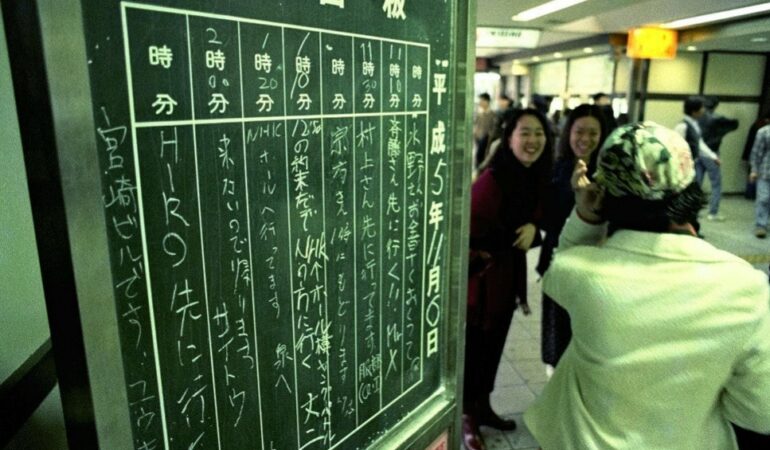 板
平成5年11月6日
時 分 水野さんお金早くおくって
11時10分 斉藤さん先に行く!! Mr X
11時30分 村上さん先に行ってます 服部
時 分 宗方さん 時にもどります
時10分 の約束だで NHKホール横 の方に行く 丈二
1時20分 NHKホールへ行ってます 泉へ
2時00分 来たいので帰ります サイトウ
時 分 HIROの先に行
宮崎ビルです。ユウキ